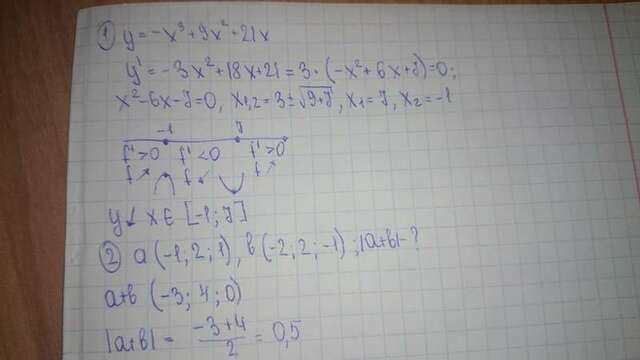 ① y=-x³+9x²+21x
y'=-3x²+18x+21=3·(-x²+6x+7)=0;
x²-6x-7=0, x₁,₂=3±√9+7, x₁=7, x₂=-1
-1 7
f'>0 f'<0 f'>0
f↗ f↙ f↗
y↓ x∈[-1;7]
② a(-1;2;1), b(-2;2;-1); |a+b|-?
a+b (-3;4;0)
|a+b|= (-3+4)/2 = 0,5